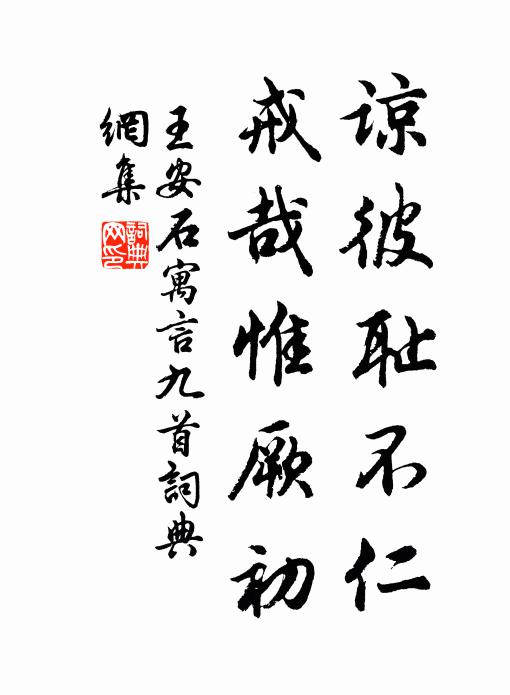 諒彼耻不仁
戒哉惟厥初
王安石寓言九首詞典
網集
詞典網印